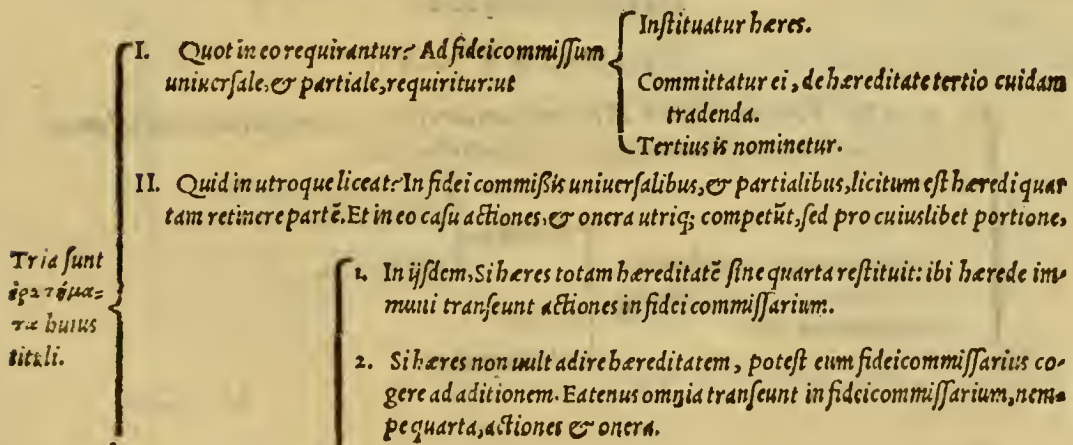 Tria sunt
ἐρωτήμα=
τα huius
tituli.
I. Quot in eo requirantur? Ad fideicommissum
uniuersale, & partiale, requiritur: ut
Instituatur hæres.
Committatur ei, de hæreditate tertio cuidam
tradenda.
Tertius is nominetur.
II. Quid in utroque liceat? In fideicommißis uniuersalibus, & partialibus, licitum est hæredi quar
tam retinere partē. Et in eo casu actiones, & onera utriq; competūt, sed pro cuiuslibet portione,
1. In ijsdem, Si hæres totam hæreditatē sine quarta restituit: ibi hærede im-
muni transeunt actiones in fideicommissarium.
2. Si hæres non uult adire hæreditatem, potest eum fideicommissarius co-
gere ad aditionem. Eatenus omnia transeunt in fideicommissarium, nem=
pe quarta, actiones & onera.